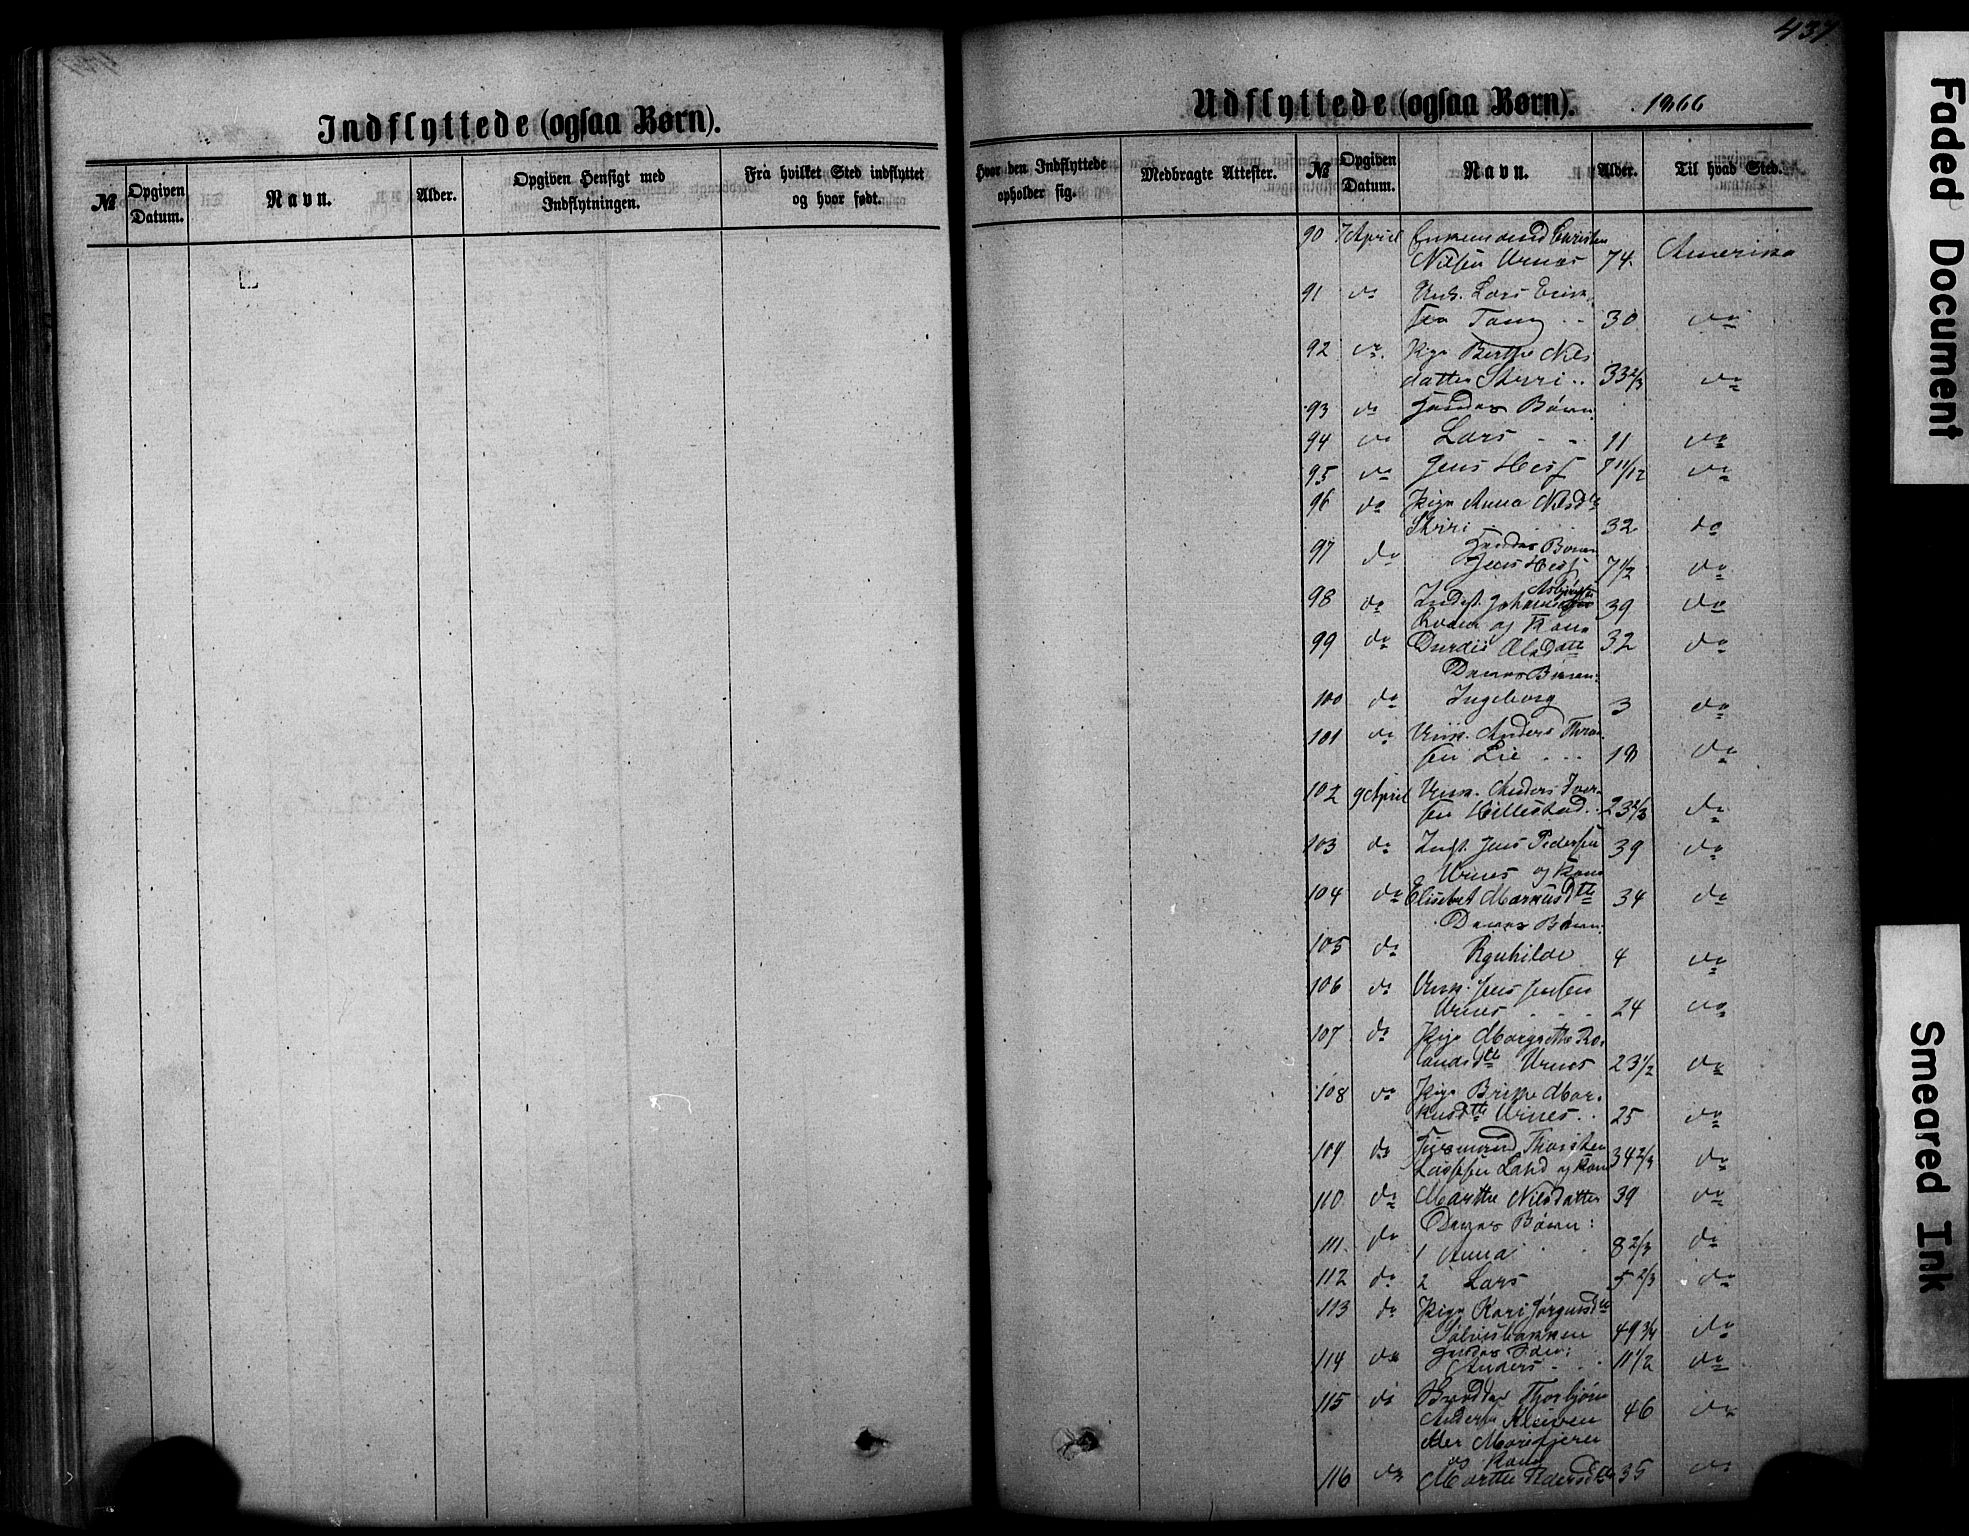 437.
Indflyttede (ogsaa Børn).
№
Opgiven Datum.
Navn.
Alder.
Opgiven Hensigt med Indflytningen.
Fra hvilket Sted indflyttet og hvor født.
Udflyttede (ogsaa Børn). 1866
Hvor den Indflyttede opholder sig.
Medbragte Attester.
№
Opgiven Datum.
Navn.
Alder.
Til hvad Sted.
90 7 April Enkemand Christen
Nilsen Urnæs 74. Amerika
91 do Unk. Lars Erik
sen Tang 30 do
92 do. Pige Berthe Nils
datter Skriri 33 2/3 do
93 do Hendes Børn
94 do Lars 11 do
95 do Jens Hess 7 11/12 do
96 do Pige Anna Nilsdtr
Skriri 32 do
97 do Hendes Børn
Jens Hess 7 1/2 do
98 do Inderst. Johannes Asbjørnsen 39 do
og Kone
99 do Durdei Olsdatter 32 do
Deres Børn:
100 do Ingeborg 3 do
101 do Unk. Anders
sen Lie 18 do
102 9 April Unk. Anders Iver-
sen Hillestad. 23 2/3 do
103 do Indst. Jens Pedersen 39 do
Urnes og Kone
104 do Elisebet Markusdtr 34 do
Deres Børn.
105 do Ragnhilde 4 do
106 do Unk. Jens Jensen
Urnes 24 do
107 do Pige Margrethe Ro-
landsdtr Urnes 23 1/2 do
108 do Pige Brithe Mar-
kusdtr Urnes 25 do
109 do Husmand Thorsten
Larssen Land og Kone 34 2/3 do
110 do Marthe Nilsdatter 39 do
Deres Børn:
111. do 1 Anna 8 2/3 do
112 do 2 Lars 5 2/3 do
113 do Pige Kari Jørgensdtr
49 3/4 do
114 do Hendes Søn:
Anders 11 1/2 do
115 do Thorbjørn
Anders. Kleiven 46 do
eller Marifjæren
og Kone
116 do Marthe Pedersdtr 35 do
Faded Document
Smeared Ink